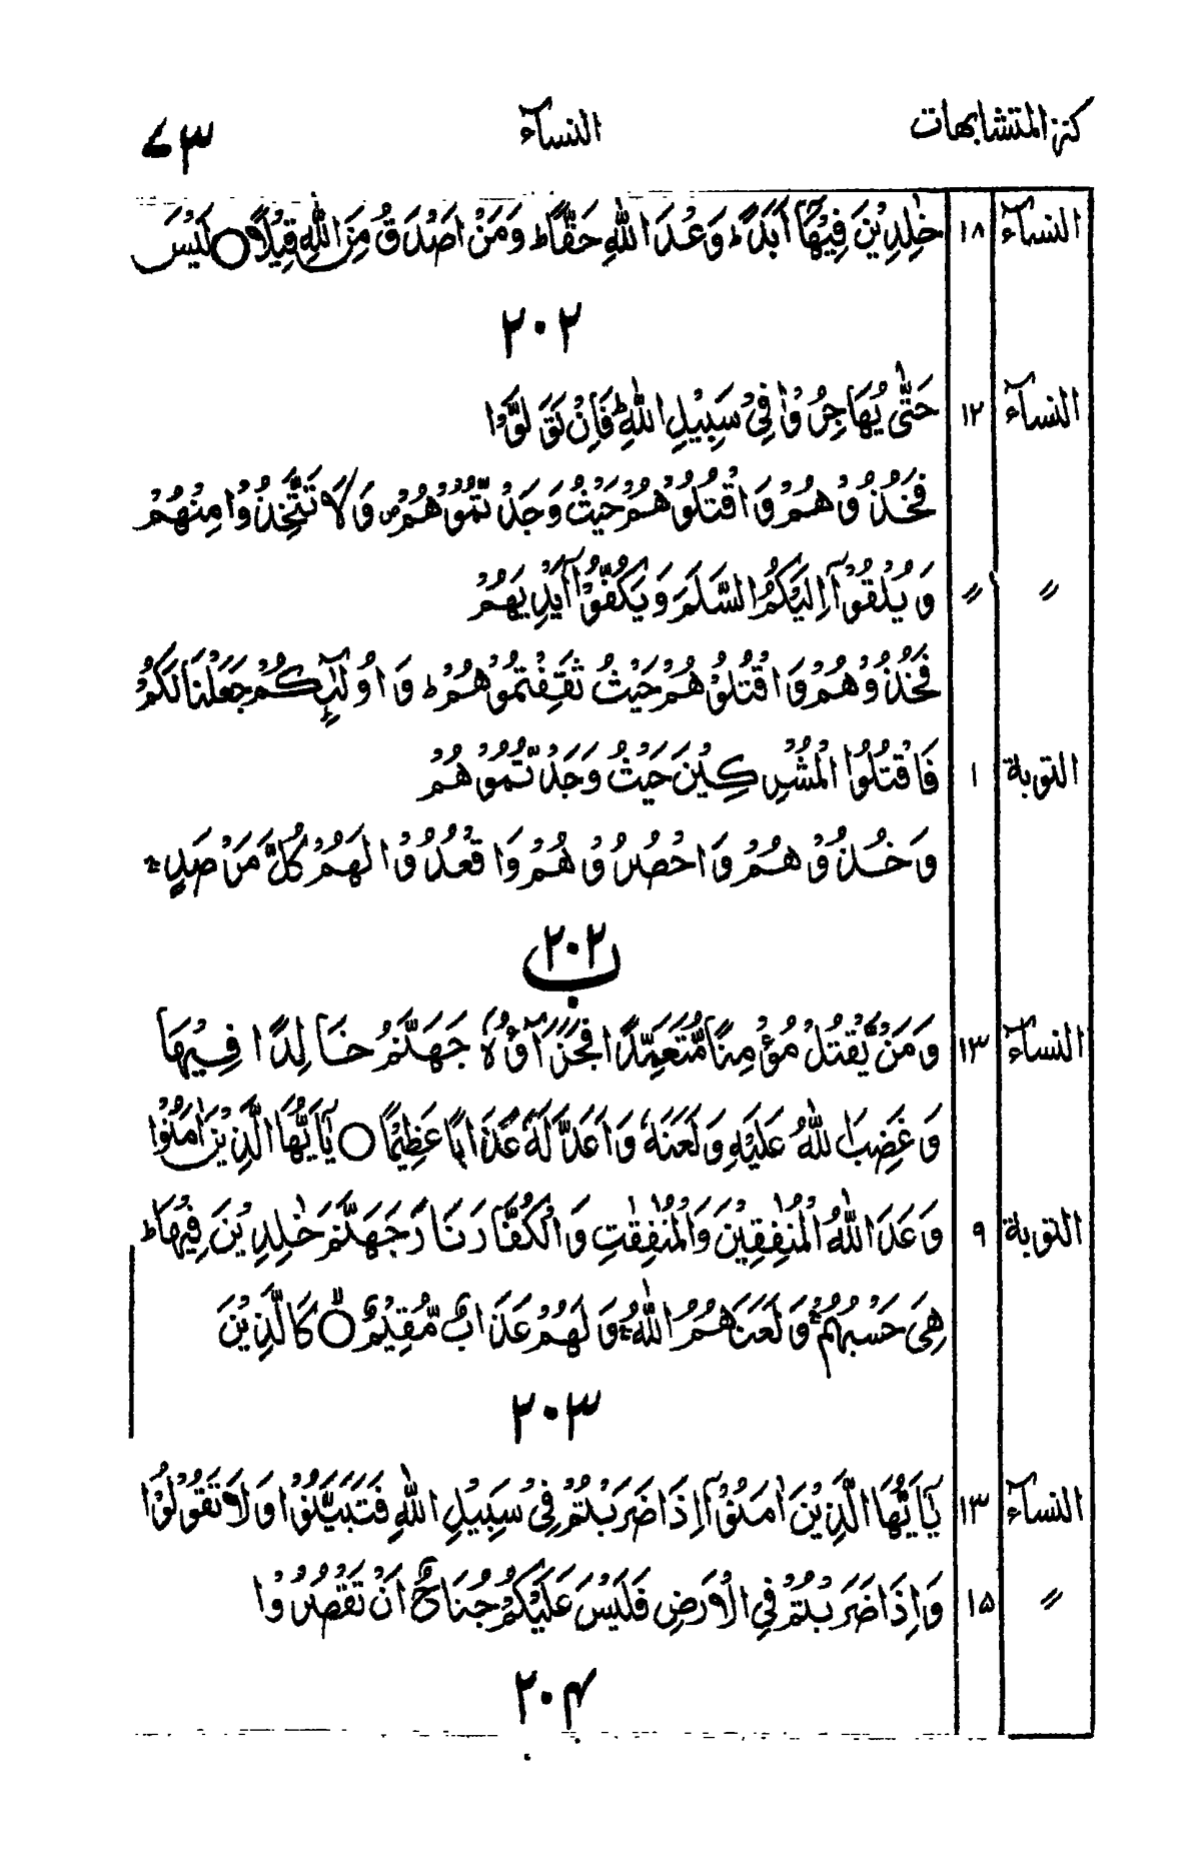 كنز المتشابهات النسآء ٧٣
النسآء ١٨ خٰلِدِيْنَ فِيْهَآ اَبَدًا ؕ وَعْدَ اللّٰهِ حَقًّا ؕ وَمَنْ اَصْدَقُ مِنَ اللّٰهِ قِيْلًا ○ لَيْسَ
٢٠٢
النسآء ١٢ حَتّٰى يُهَاجِرُوْا فِيْ سَبِيْلِ اللّٰهِ ؕ فَاِنْ تَوَلَّوْا
فَخُذُوْهُمْ وَاقْتُلُوْهُمْ حَيْثُ وَجَدْتُّمُوْهُمْ ۪ وَلَا تَتَّخِذُوْا مِنْهُمْ
〃 〃 وَيُلْقُوْٓا اِلَيْكُمُ السَّلَمَ وَيَكُفُّوْٓا اَيْدِيَهُمْ
فَخُذُوْهُمْ وَاقْتُلُوْهُمْ حَيْثُ ثَقِفْتُمُوْهُمْ ؕ وَاُولٰٓئِكُمْ جَعَلْنَا لَكُمْ
التوبة ١ فَاقْتُلُوا الْمُشْرِكِيْنَ حَيْثُ وَجَدْتُّمُوْهُمْ
وَخُذُوْهُمْ وَاحْصُرُوْهُمْ وَاقْعُدُوْا لَهُمْ كُلَّ مَرْصَدٍ ۚ
٢٠٢ ب
النسآء ١٣ وَمَنْ يَّقْتُلْ مُؤْمِنًا مُّتَعَمِّدًا فَجَزَآؤُهٗ جَهَنَّمُ خَالِدًا فِيْهَا
وَغَضِبَ اللّٰهُ عَلَيْهِ وَلَعَنَهٗ وَاَعَدَّ لَهٗ عَذَابًا عَظِيْمًا ○ يٰٓاَيُّهَا الَّذِيْنَ اٰمَنُوْٓا
التوبة ٩ وَعَدَ اللّٰهُ الْمُنٰفِقِيْنَ وَالْمُنٰفِقٰتِ وَالْكُفَّارَ نَارَ جَهَنَّمَ خٰلِدِيْنَ فِيْهَا ؕ
هِيَ حَسْبُهُمْ ۚ وَلَعَنَهُمُ اللّٰهُ ۚ وَلَهُمْ عَذَابٌ مُّقِيْمٌ ○ كَالَّذِيْنَ
٢٠٣
النسآء ١٣ يٰٓاَيُّهَا الَّذِيْنَ اٰمَنُوْٓا اِذَا ضَرَبْتُمْ فِيْ سَبِيْلِ اللّٰهِ فَتَبَيَّنُوْا وَلَا تَقُوْلُوْا
〃 ١٥ وَاِذَا ضَرَبْتُمْ فِي الْاَرْضِ فَلَيْسَ عَلَيْكُمْ جُنَاحٌ اَنْ تَقْصُرُوْا
٢٠٤